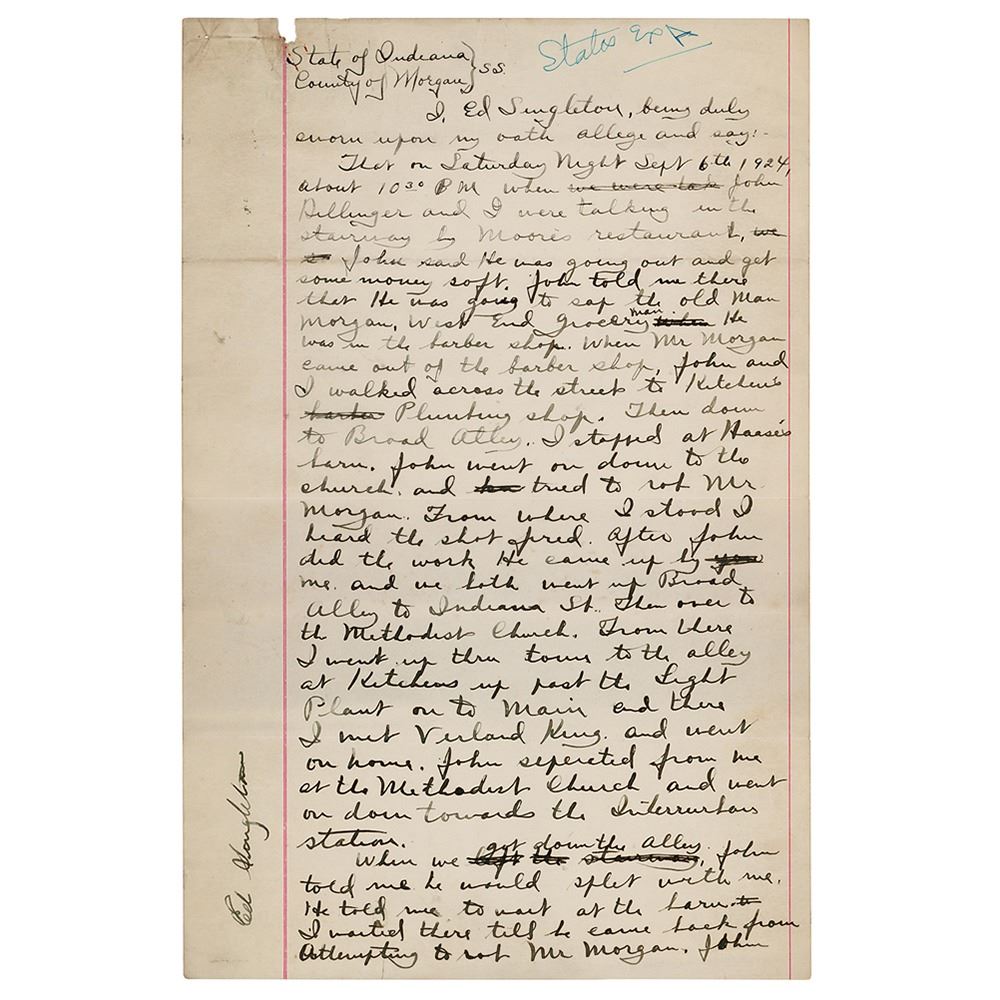 States Ex A
State of Indiana }
County of Morgan } SS.
I, Ed Singleton, being duly
sworn upon my oath allege and say:-
That on Saturday Night Sept 6th 1924,
about 10 30 P M when we were tak John
Dillinger and I were talking in the
stairway by Moore's restaurant, we
s John said He was going out and get
some money soft. John told me there
that He was going to sap the old Man
Morgan, West End grocery man when He
was in the barber shop. When Mr Morgan
came out of the barber shop, John and
I walked across the street to Kitchen's
barber Plumbing shop. Then down
to Broad Alley. I stopped at Haase's
barn. John went on down to the
church. and tried to rob Mr.
Morgan. From where I stood I
heard the shot fired. After John
did the work He came up by you
me. and we both went up Broad
Alley to Indiana St. Then over to
the Methodist Church. From there
I went up thru town to the alley
at Kitchens up past the Light
Plant on to Main and there
I met Verland King. and went
on home. John seperated from me
at the Methodist Church and went
on down towards the Interrurban
station.
When we left the stairway, got down the Alley, John
told me he would split with me.
He told me to wait at the barn to
I waited there till he came back from
Attempting to rob Mr Morgan. John
Ed Singleton